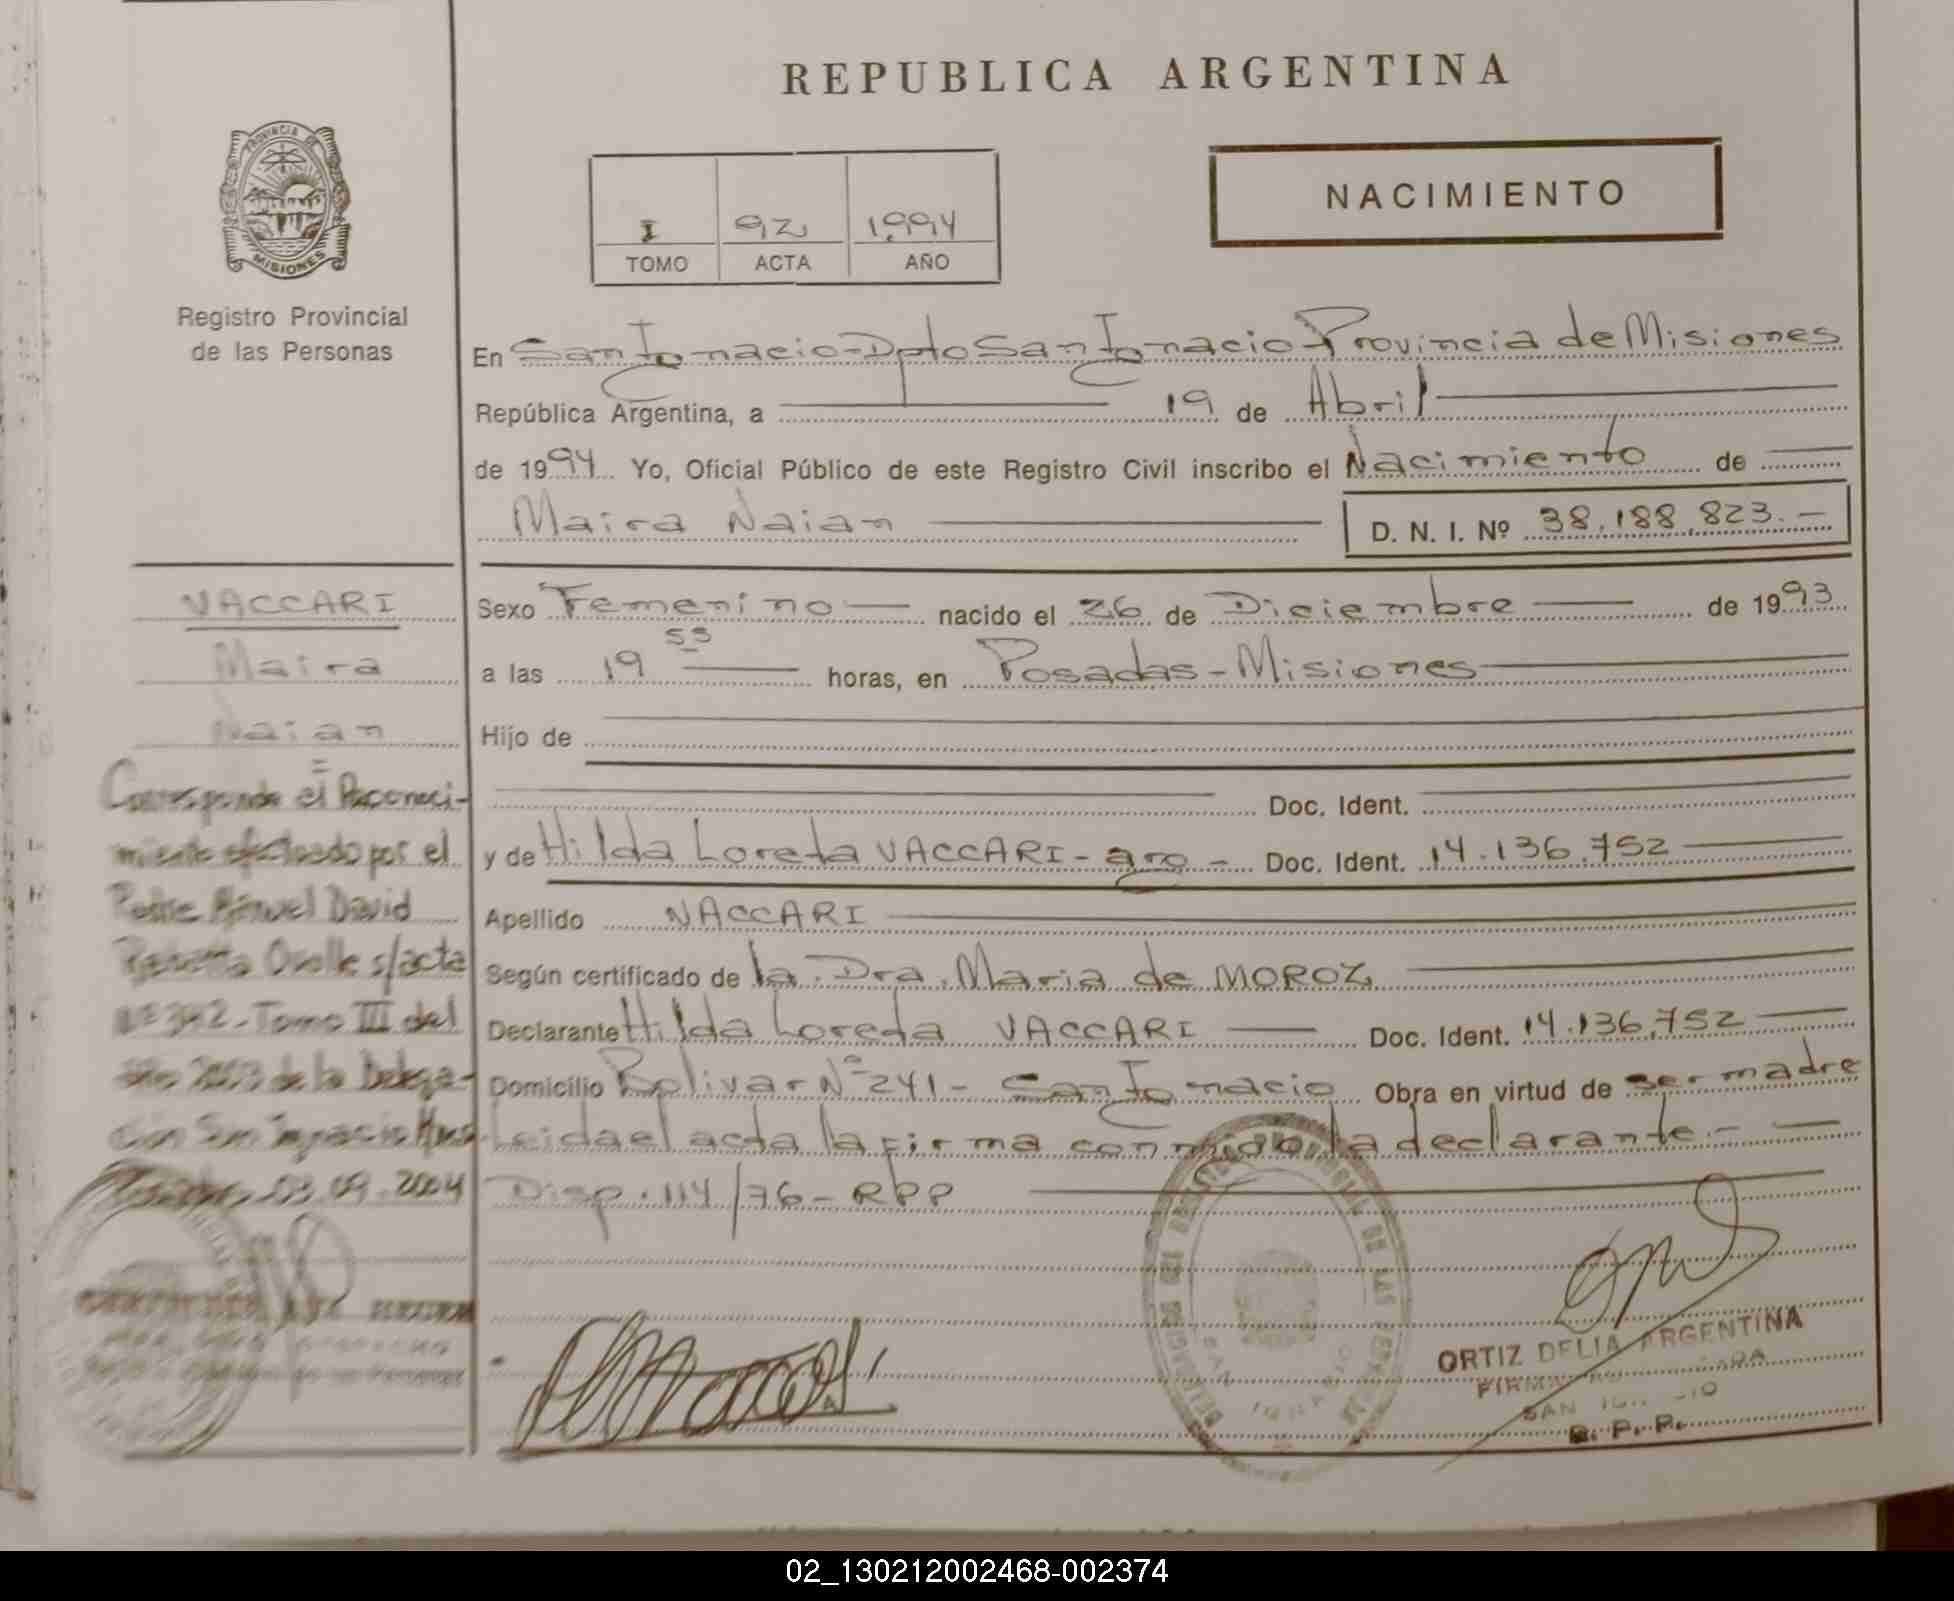 REPUBLICA ARGENTINA
PROVINCIA DE
MISIONES
Registro Provincial
de las Personas
I 92 1994
TOMO ACTA AÑO
NACIMIENTO
En San Ignacio - Dpto San Ignacio Provincia de Misiones
República Argentina, a 19 de Abril
de 1994 Yo, Oficial Público de este Registro Civil inscribo el Nacimiento de
Maira Naian D. N. I. Nº 38.188.823.-
Sexo Femenino nacido el 26 de Diciembre de 1993
a las 19 55 horas, en Posadas - Misiones
Hijo de
Doc. Ident.
y de Hilda Loreta VACCARI - arg - Doc. Ident. 14.136.752
Apellido VACCARI
Según certificado de la Dra. Maria de MOROZ
Declarante Hilda Loreta VACCARI Doc. Ident. 14.136.752
Domicilio Bolivar Nº 241 - San Ignacio Obra en virtud de ser madre
Leida el acta la firma conmigo la declarante.-
Disp. 114/76 - RPP
VACCARI
Maira
Naian
=
Corresponde el Reconoci-
miento efectuado por el
Padre Manuel David
s/acta
Nº 342 - Tomo III del
año 2003 de la Delega-
ción San Ignacio
Posadas, 03.09.2004
ORTIZ DELIA ARGENTINA
FIRMA
SAN
R. P. P.
SAN IGNACIO
02_130212002468-002374